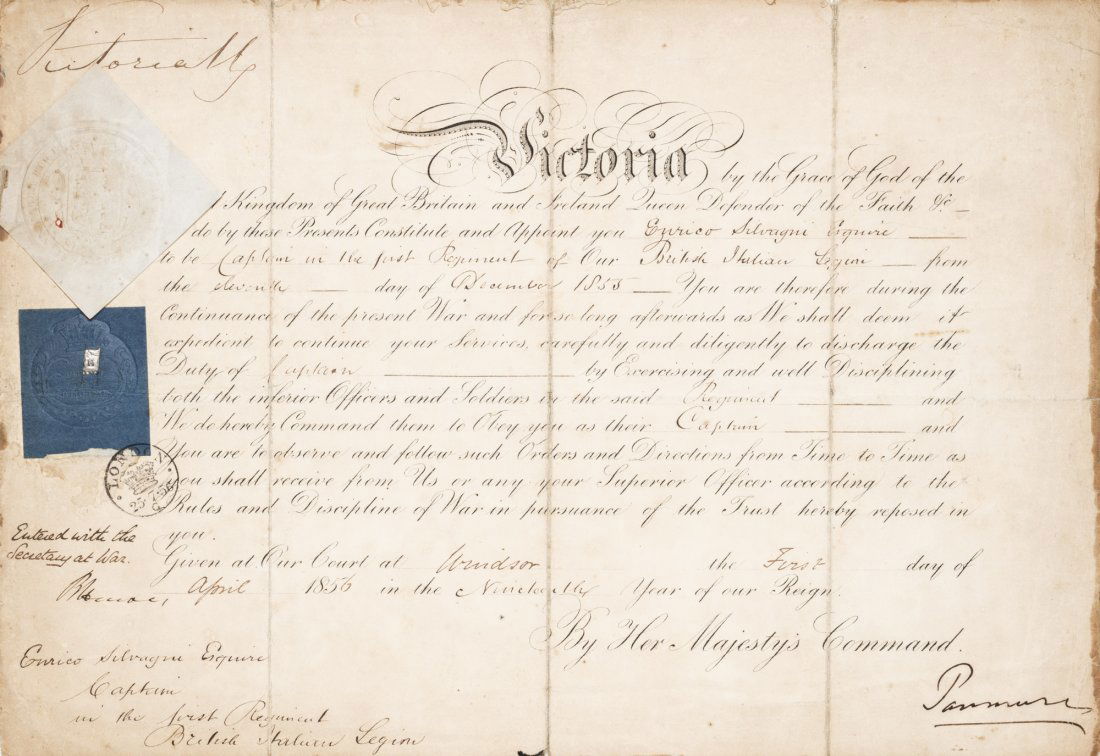 Victoria R
Victoria by the Grace of God of the
Kingdom of Great Britain and Ireland Queen Defender of the Faith &c
do by these Presents Constitute and Appoint you Enrico Silvagni Esquire
to be Captain in the first Regiment of Our British Italian Legion from
the eleventh day of December 1855 You are therefore during the
Continuance of the present War and for so long afterwards as We shall deem it
expedient to continue your Services, carefully and diligently to discharge the
Duty of Captain by Exercising and well Disciplining
both the inferior Officers and Soldiers in the said Regiment and
We do hereby Command them to Obey you as their Captain and
You are to observe and follow such Orders and Directions from Time to Time as
you shall receive from Us or any your Superior Officer according to the
Rules and Discipline of War in pursuance of the Trust hereby reposed in
you.
Given at Our Court at Windsor the First day of
April 1856 in the Nineteenth Year of our Reign.
By Her Majestys Command.
Panmure
LONDON
Entered with the
Secretary at War.
Enrico Silvagni Esquire
Captain
in the first Regiment
British Italian Legion